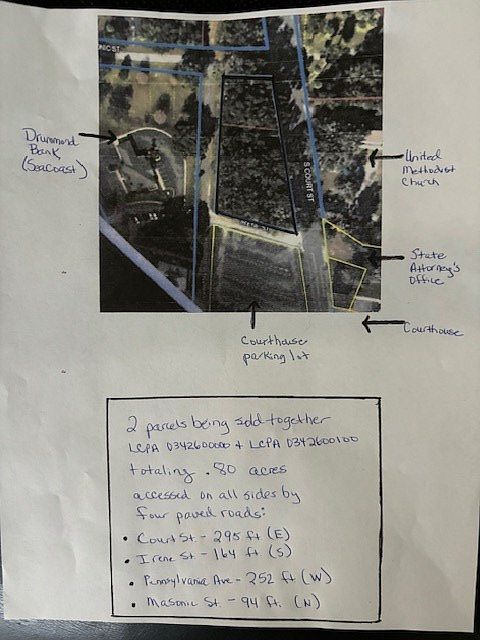 NIC ST
Drummond
Bank
(Seacoast)
S COURT ST
United
Methodist
Church
State
Attorney's
Office
Courthouse
Courthouse
parking lot
2 parcels being sold together
LCPA 0342600000 + LCPA 0342600100
totaling .80 acres
accessed on all sides by
four paved roads:
• Court St - 295 ft (E)
• Irene St - 164 ft (S)
• Pennsylvania Ave - 252 ft (W)
• Masonic St - 94 ft. (N)